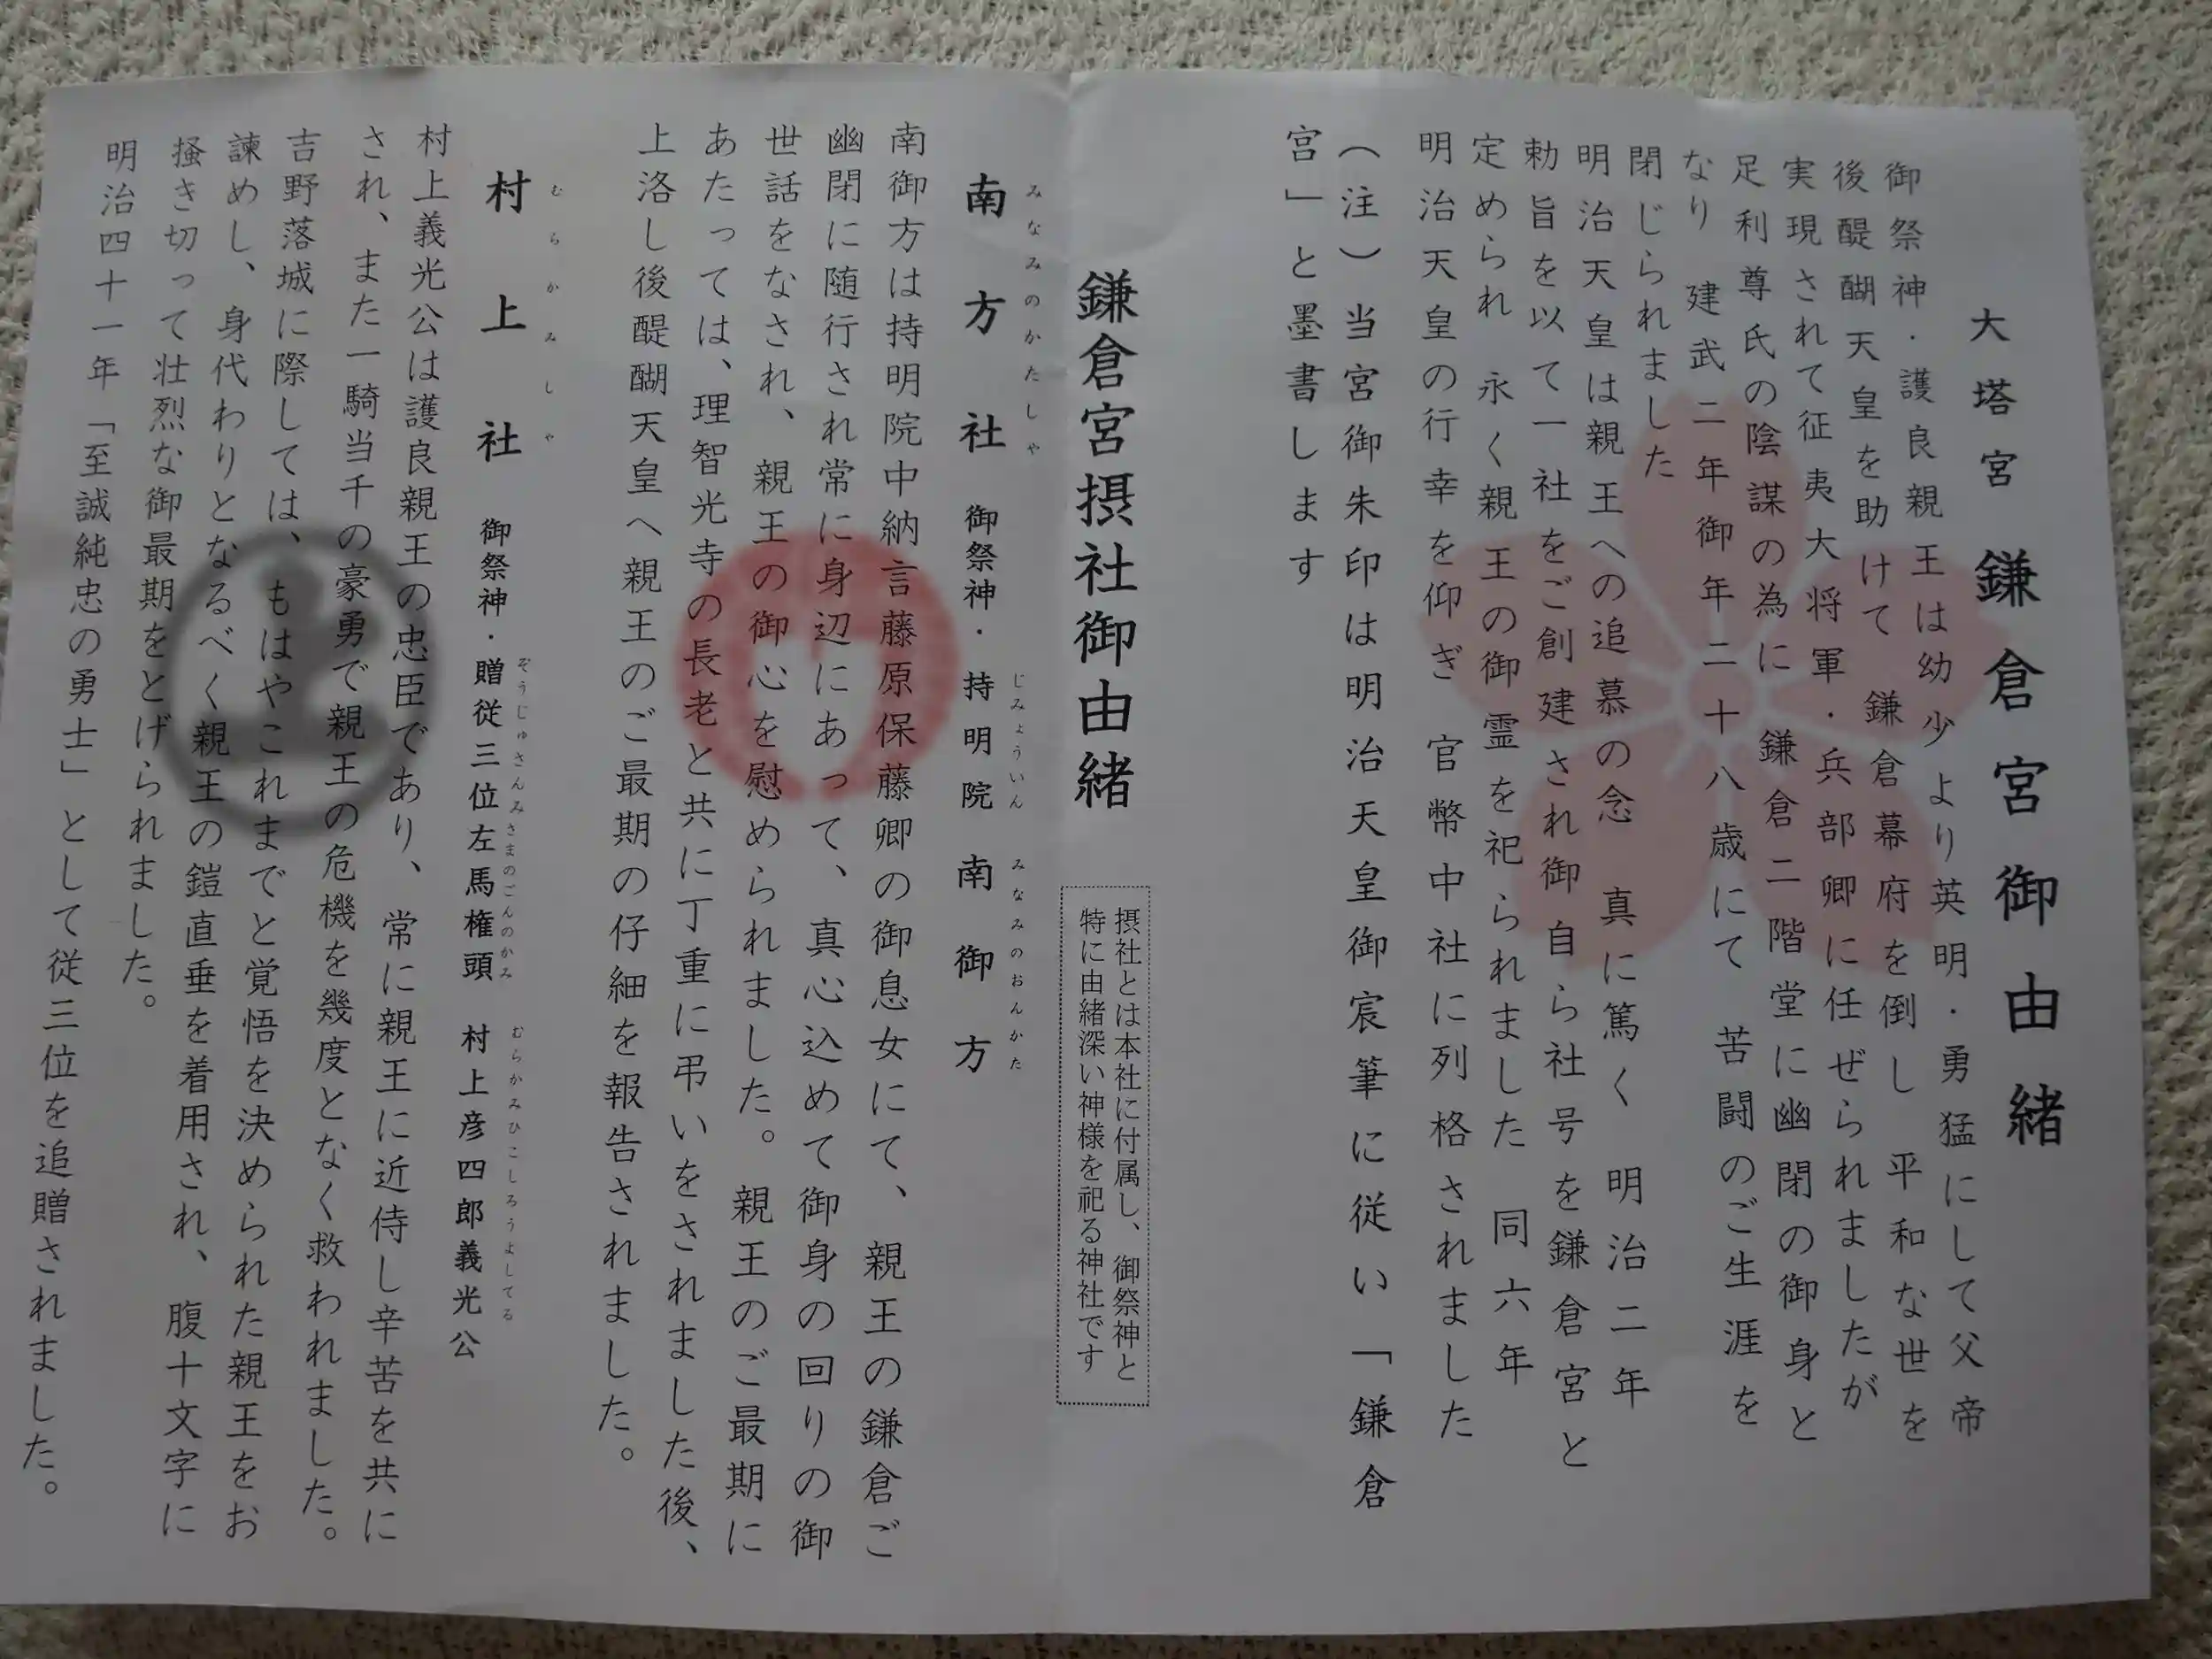 大塔宮 鎌倉宮御由緒
御祭神・護良親王は幼少より英明・勇猛にして父帝
後醍醐天皇を助けて 鎌倉幕府を倒し 平和な世を
実現されて征夷大将軍・兵部卿に任ぜられましたが
足利尊氏の陰謀の為に 鎌倉二階堂に幽閉の御身と
なり 建武二年御年二十八歳にて 苦闘のご生涯を
閉じられました
明治天皇は親王への追慕の念 真に篤く 明治二年
勅旨を以て一社をご創建され御自ら社号を鎌倉宮と
定められ 永く親王の御霊を祀られました 同六年
明治天皇の行幸を仰ぎ 官幣中社に列格されました
(注)当宮御朱印は明治天皇御宸筆に従い「鎌倉
宮」と墨書します
鎌倉宮摂社御由緒
摂社とは本社に付属し、御祭神と
特に由緒深い神様を祀る神社です
みなみのかたしゃ じみょういん みなみのおんかた
南方社 御祭神・持明院 南御方
南御方は持明院中納言藤原保藤卿の御息女にて、親王の鎌倉ご
幽閉に随行され常に身辺にあって、真心込めて御身の回りの御
世話をなされ、親王の御心を慰められました。親王のご最期に
あたっては、理智光寺の長老と共に丁重に弔いをされました後、
上洛し後醍醐天皇へ親王のご最期の仔細を報告されました。
むらかみしゃ ぞうじゅさんみさまのごんのかみ むらかみひこしろうよしてる
村上社 御祭神・贈従三位左馬権頭 村上彦四郎義光公
村上義光公は護良親王の忠臣であり、常に親王に近侍し辛苦を共に
され、また一騎当千の豪勇で親王の危機を幾度となく救われました。
吉野落城に際しては、もはやこれまでと覚悟を決められた親王をお
諫めし、身代わりとなるべく親王の鎧直垂を着用され、腹十文字に
掻き切って壮烈な御最期をとげられました。
明治四十一年「至誠純忠の勇士」として従三位を追贈されました。